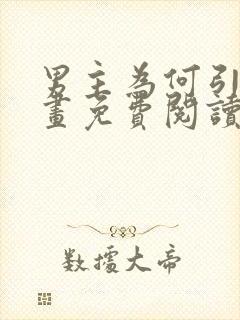 男主為何引
畫免費閱讀
數據大帝